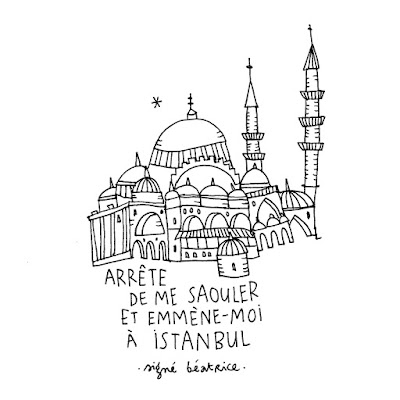 ARRÊTE
DE ME SAOULER
ET EMMÈNE-MOI
À ISTANBUL
· signé béatrice ·